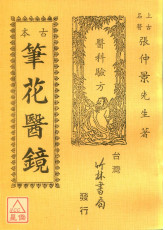 上古名醫
張仲景先生著
醫科驗方
台灣
竹林書局
發行
古本
筆花醫鏡